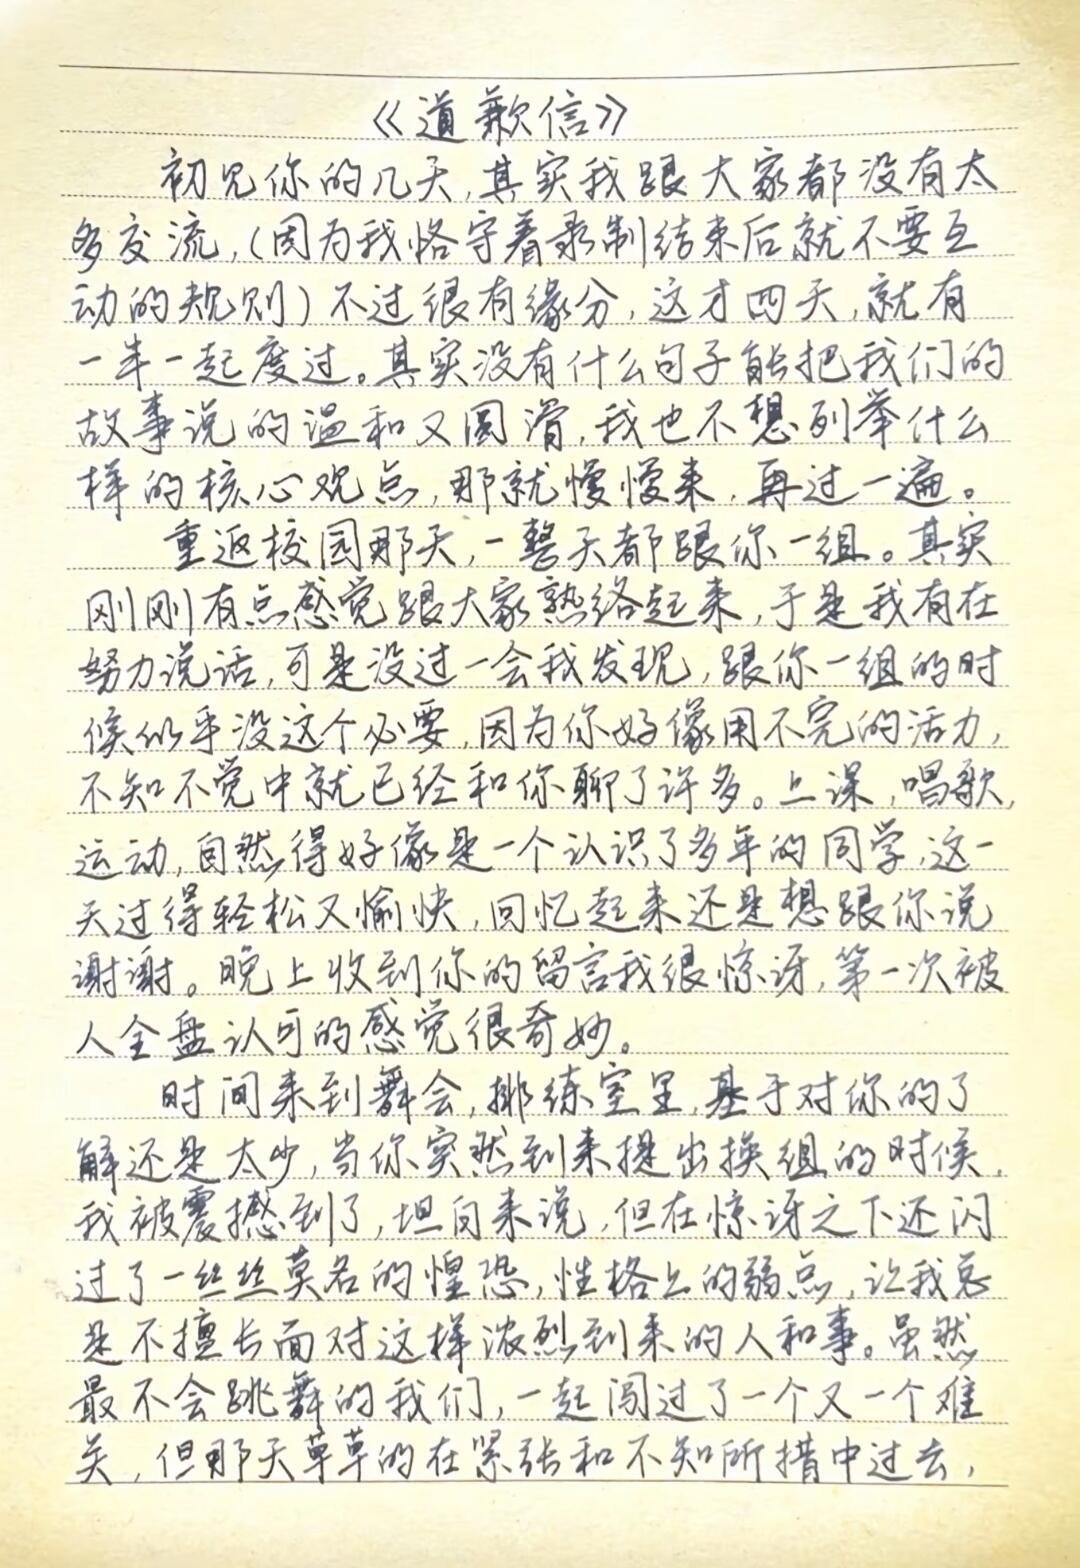 《道歉信》
初见你的几天,其实我跟大家都没有太
多交流,(因为我恪守着录制结束后就不要互
动的规则)不过很有缘分,这才四天,就有
一半一起度过。其实没有什么句子能把我们的
故事说的温和又圆滑,我也不想列举什么
样的核心观点,那就慢慢来,再过一遍。
重返校园那天,一整天都跟你一组。其实
刚刚有点感觉跟大家熟络起来,于是我有在
努力说话,可是没过一会我发现,跟你一组的时
候似乎没这个必要,因为你好像用不完的活力,
不知不觉中就已经和你聊了许多。上课,唱歌,
运动,自然得好像是一个认识了多年的同学,这一
天过得轻松又愉快,回忆起来还是想跟你说
谢谢。晚上收到你的留言我很惊讶,第一次被
人全盘认可的感觉很奇妙。
时间来到舞会,排练室里,基于对你的了
解还是太少,当你突然到来提出换组的时候,
我被震撼到了,坦白来说,但在惊讶之下还闪
过了一丝丝莫名的惶恐,性格上的弱点,让我总
是不擅长面对这样浓烈到来的人和事。虽然
最不会跳舞的我们,一起闯过了一个又一个难
关,但那天草草的在紧张和不知所措中过去,